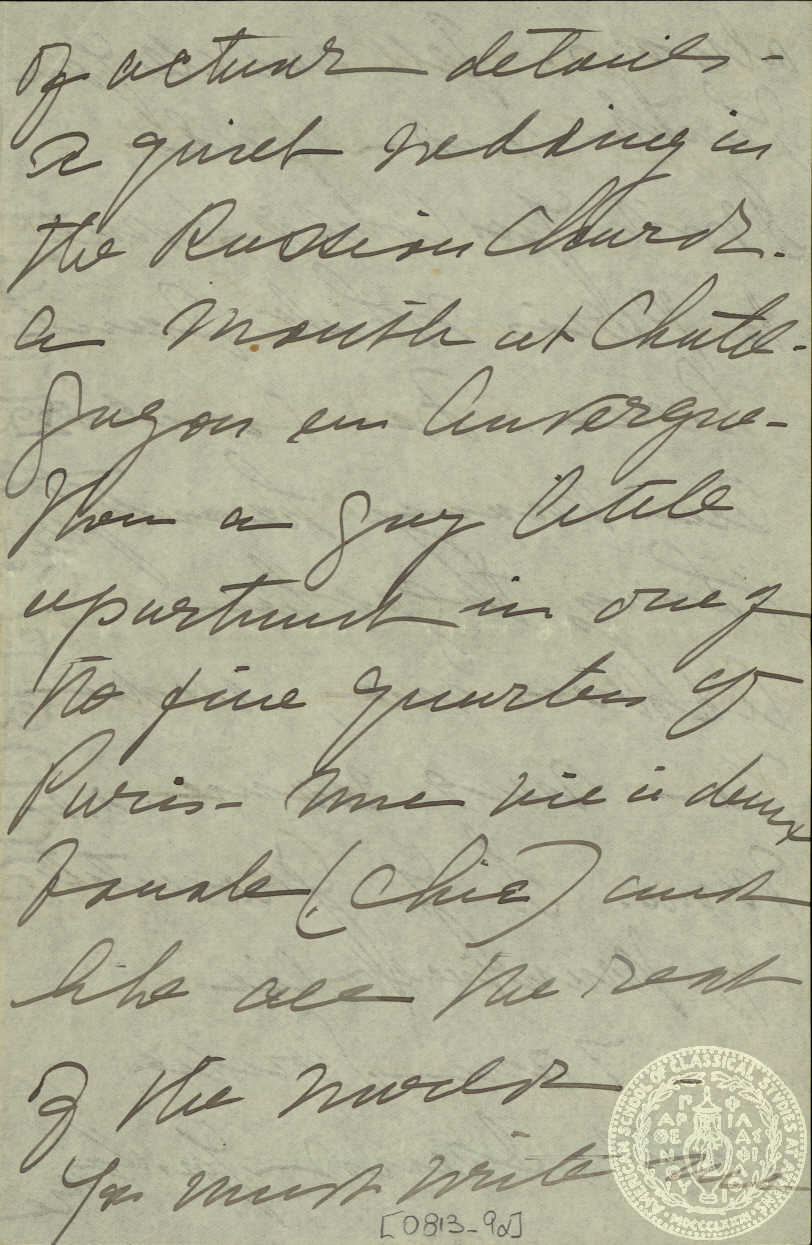 of actual details -
a quiet wedding in
the Russian Church.
a month at Chatel-
guyon en Auvergne -
Then a gay little
apartment in one of
the fine quarters of
Paris - une vie à deux
banale (chic) and
like all the rest
of the world -
You must write
[0813-9d]
AMERICAN SCHOOL OF CLASSICAL STUDIES AT ATHENS
MDCCCLXXXI